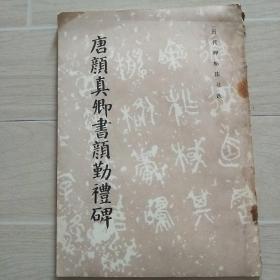 唐顔真卿書顔勤禮碑
歷代碑帖法書選